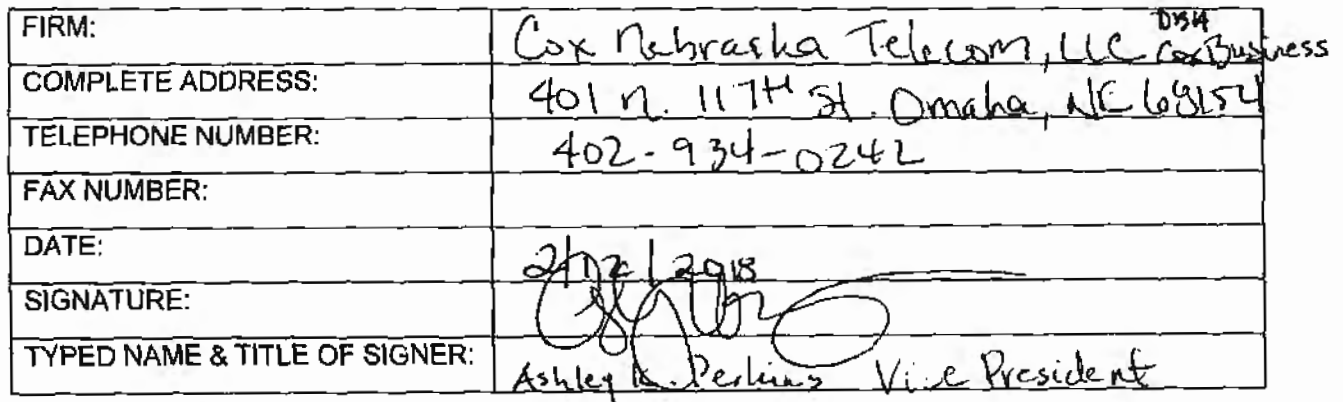 FIRM: Cox Nebraska Telecom, LLC Cox Business
COMPLETE ADDRESS: 401 N. 117TH St. Omaha, NE 68154
TELEPHONE NUMBER: 402-934-0242
FAX NUMBER:
DATE: 2/12/2018
SIGNATURE:
TYPED NAME & TITLE OF SIGNER: Ashley K. Perkins Vice President